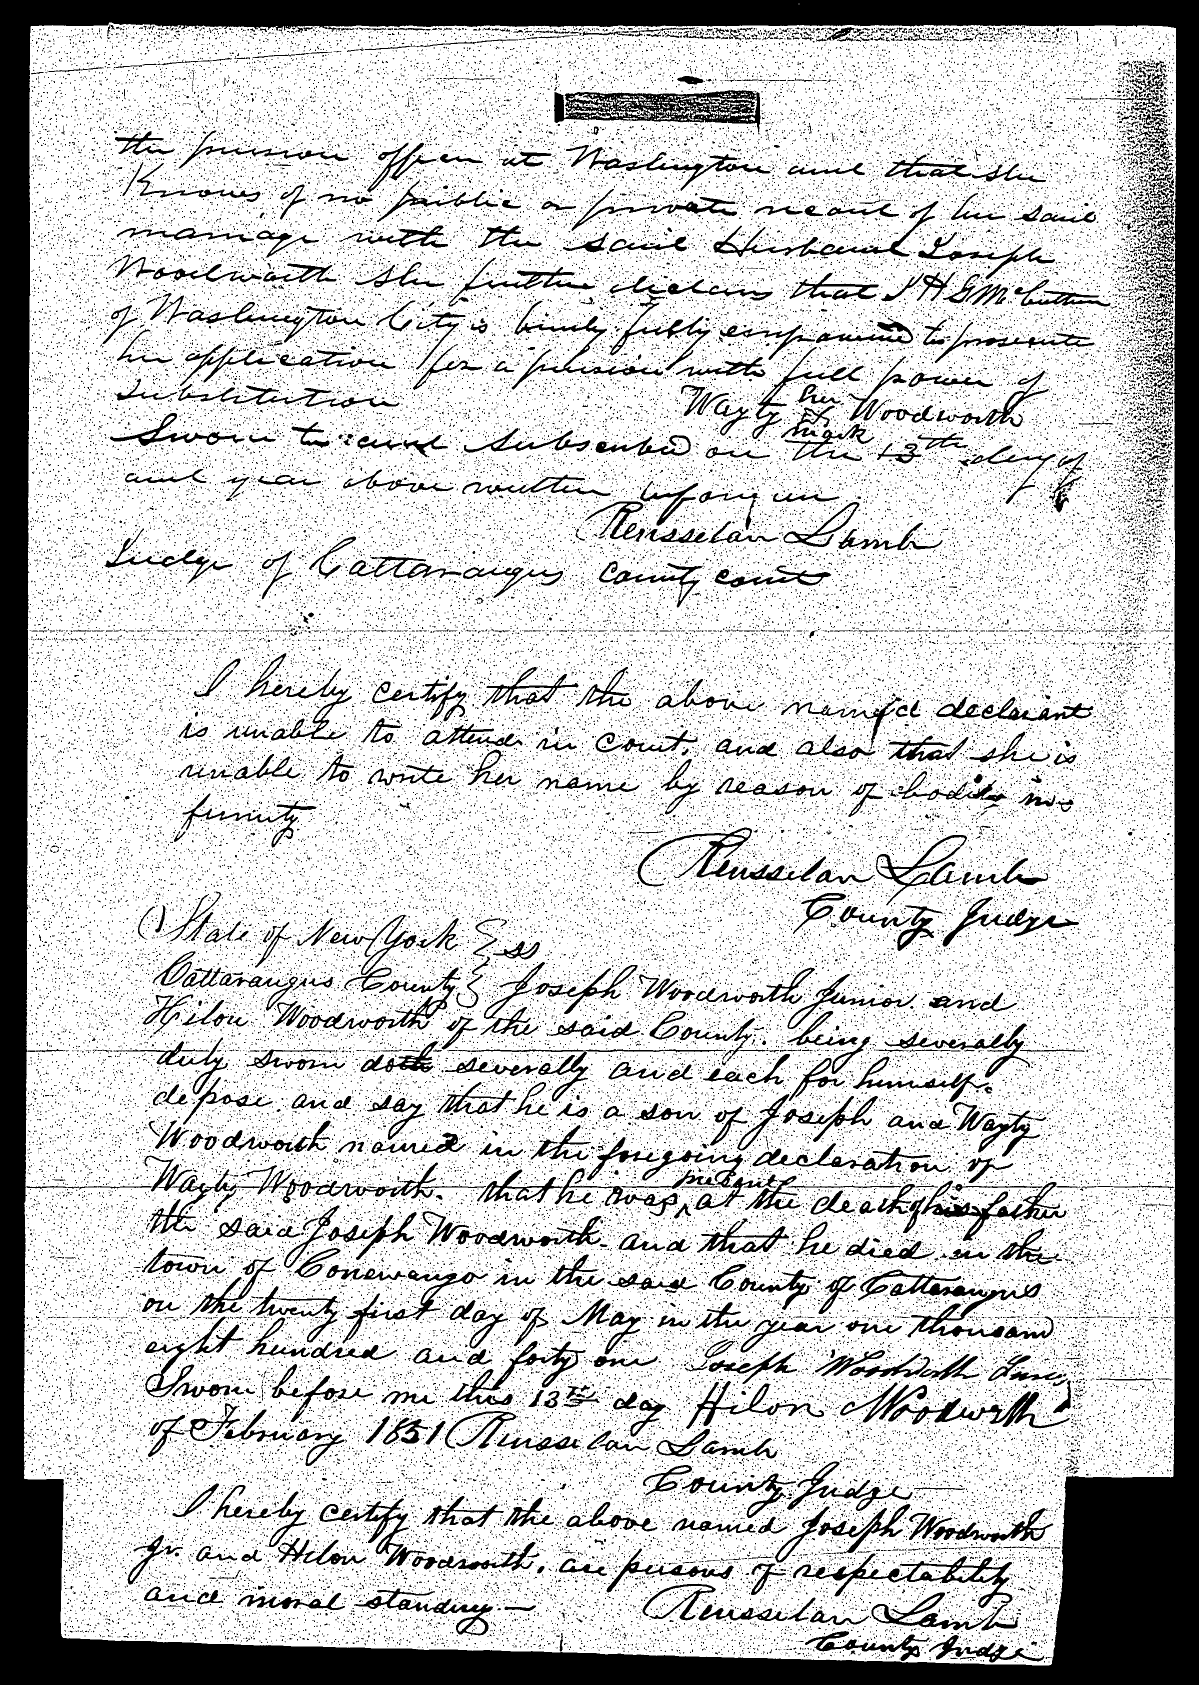 the pension office at Washington and that she
Knows of no public or private record of her said
marriage with the said Husband Joseph
Woodworth she further declares that J H G McCutten
of Washington City is hereby fully empowered to prosecute
her application for a pension with full power of
substitution
Wayty her X mark Woodworth
Sworn to and Subscribed on the 13th day of
and year above written before me
Rensselaer Lamb
Judge of Cattaraugus County court
I hereby certify that the above named declarant
is unable to attend in court, and also that she is
unable to write her name by reason of bodily in-
firmity
Rensselaer Lamb
County Judge
State of New York } ss
Cattaraugus County } Joseph Woodworth Junior and
Hilon Woodworth of the said County. being severally
duly sworn doth severally and each for himself.
depose and say that he is a son of Joseph and Wayty
Woodworth named in the foregoing declaration of
Wayty Woodworth. that he was present at the death of his father
the said Joseph Woodworth. and that he died in the
town of Conewango in the said County of Cattaraugus
on the twenty first day of May in the year one thousand
eight hundred and forty one Joseph Woodworth Junr
Sworn before me this 13th day Hilon Woodworth
of February 1851 Rensselaer Lamb
County Judge
I hereby certify that the above named Joseph Woodworth
Jr. and Hilon Woodworth. are persons of respectability
and moral standing —
Rensselaer Lamb
County Judge